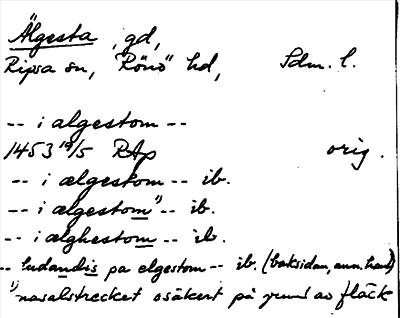 Älgesta, gd,
Ripsa sn, Rönö hd, Sdm. l.
-- i algestom --
1453 19/5 RAp orig.
-- i ælgestom -- ib.
-- i ælgestom 1) -- ib.
-- i ælghestom -- ib.
-- ludandis pa elgestom -- ib. (baksidan, ann. hand)
1) nasalstrecket osäkert på grund av fläck